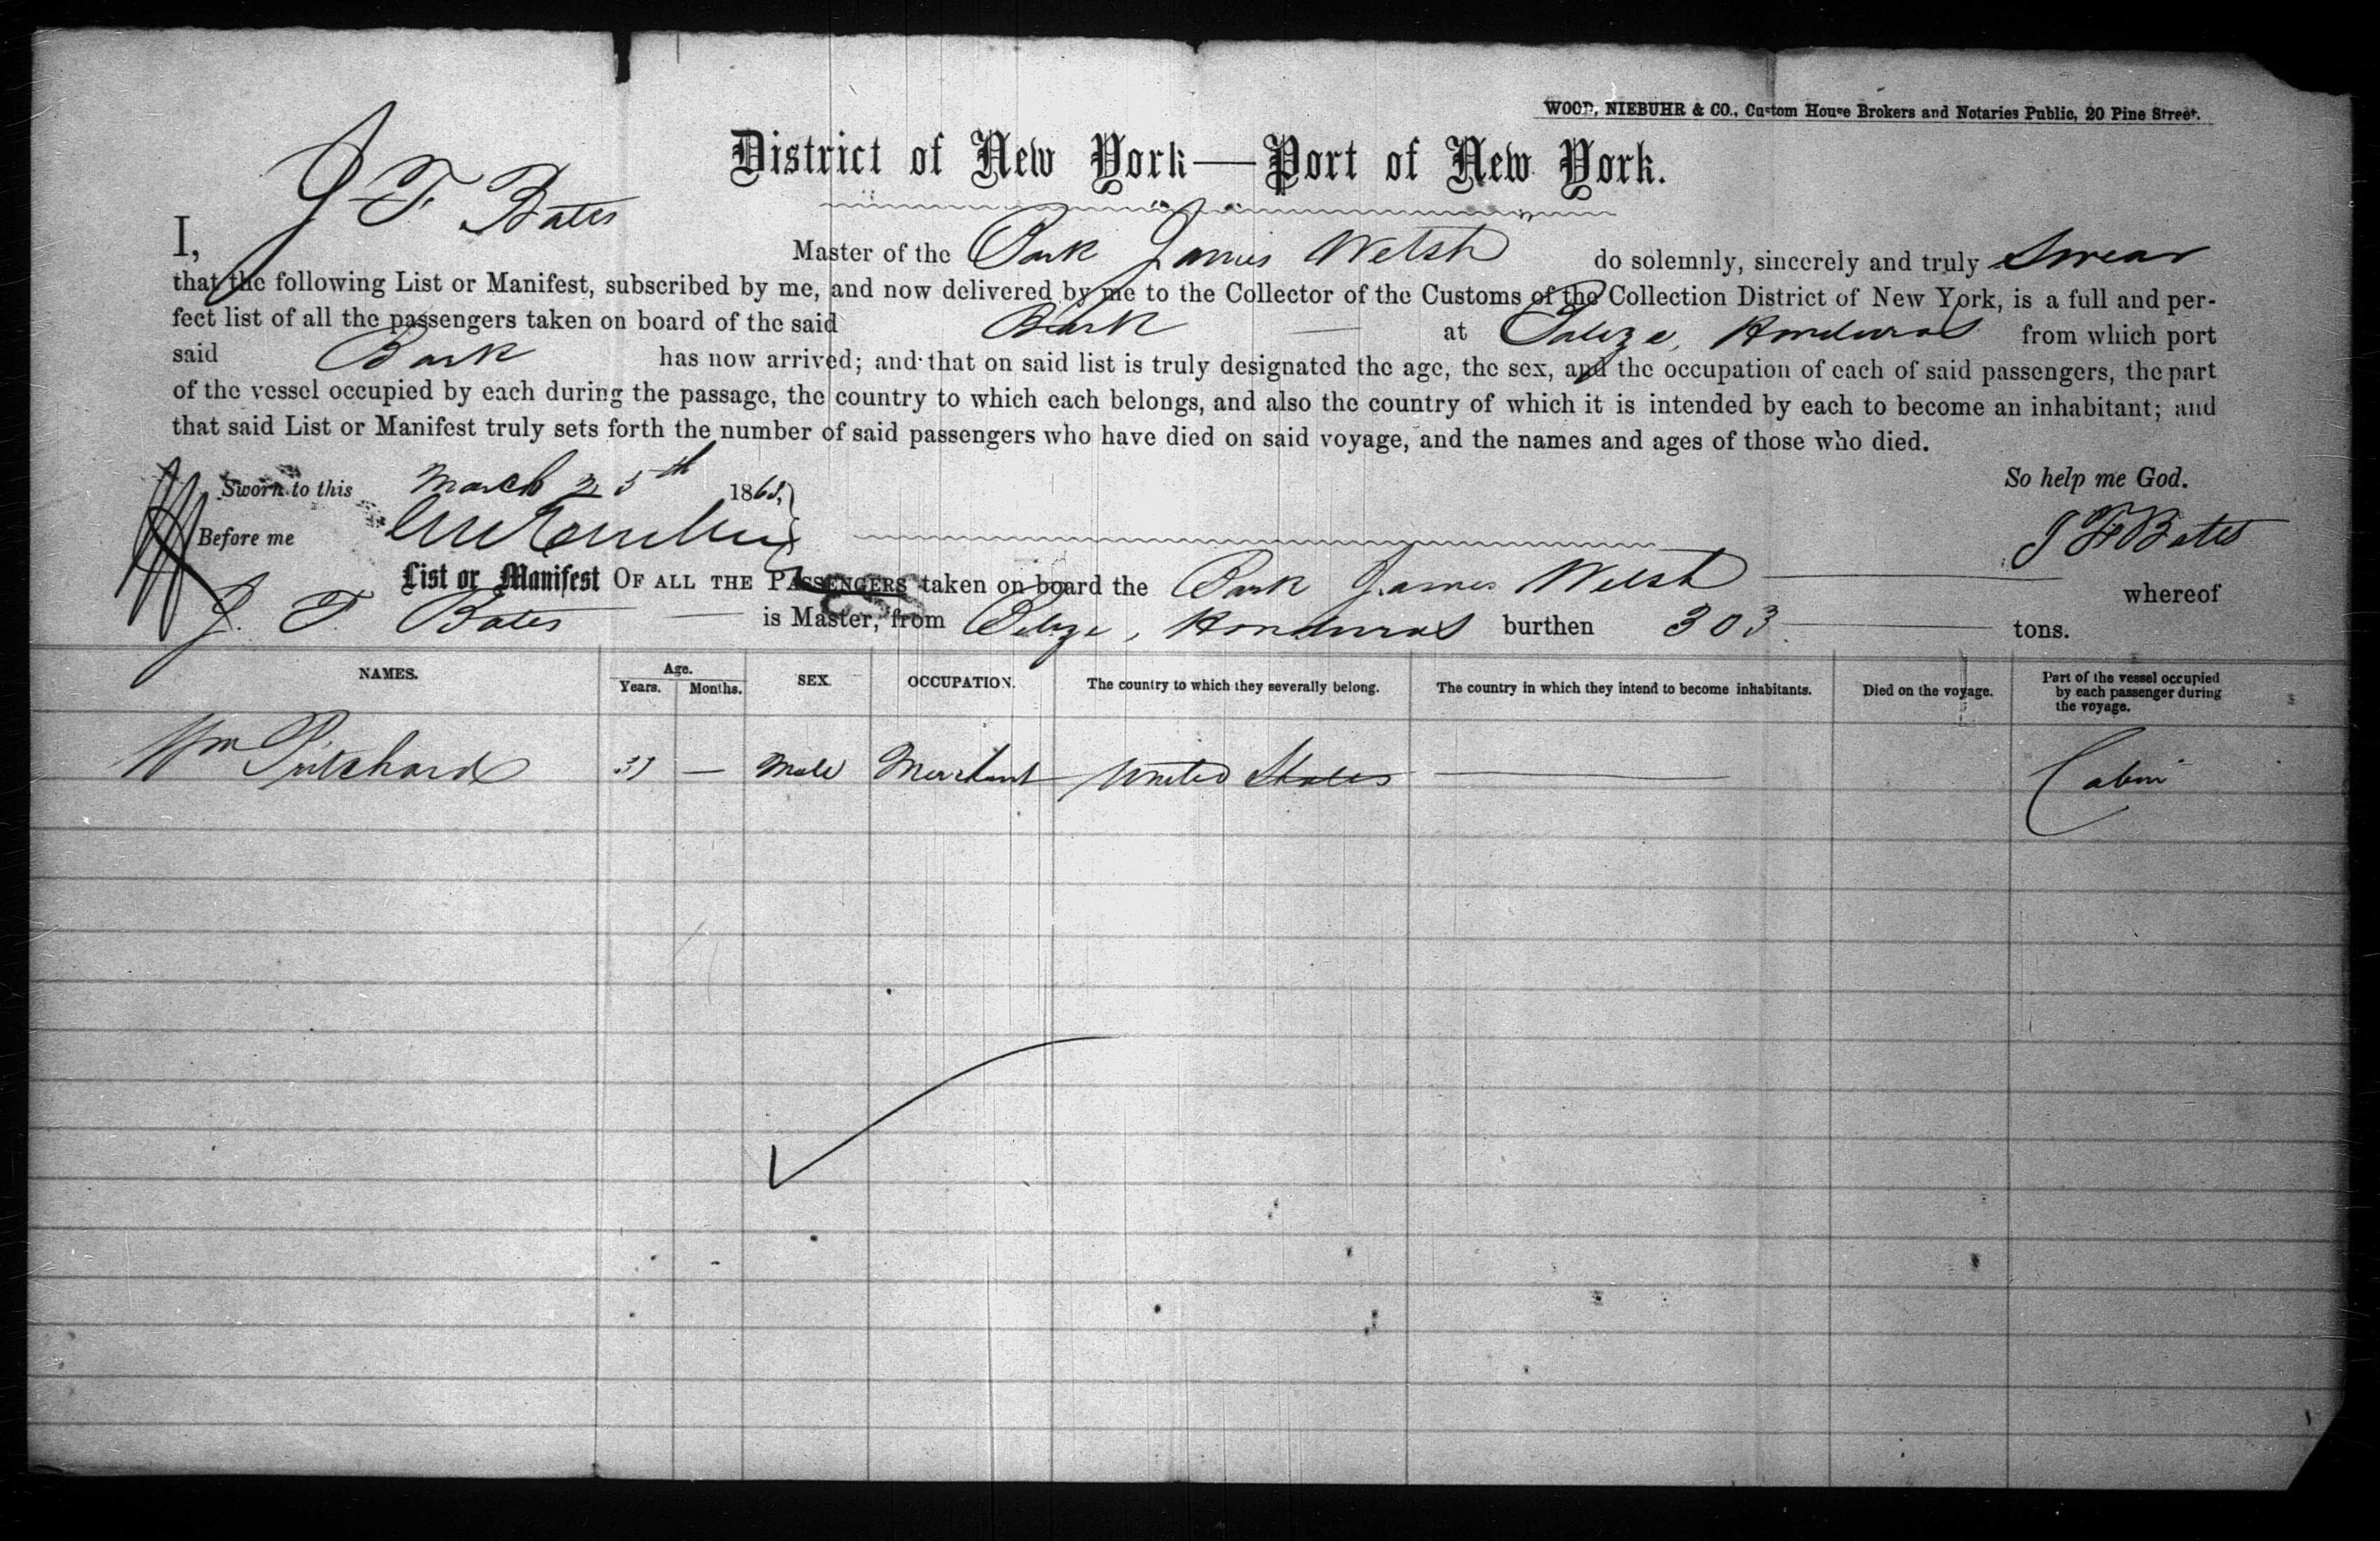 WOOD, NIEBUHR & CO., Custom House Brokers and Notaries Public, 20 Pine Street.
District of New York—Port of New York.
I, J. F. Bates Master of the Bark James Welsh do solemnly, sincerely and truly Swear
that the following List or Manifest, subscribed by me, and now delivered by me to the Collector of the Customs of the Collection District of New York, is a full and per-
fect list of all the passengers taken on board of the said Bark — at Belize, Honduras from which port
said Bark has now arrived; and that on said list is truly designated the age, the sex, and the occupation of each of said passengers, the part
of the vessel occupied by each during the passage, the country to which each belongs, and also the country of which it is intended by each to become an inhabitant; and
that said List or Manifest truly sets forth the number of said passengers who have died on said voyage, and the names and ages of those who died.
Sworn to this March 25th 186 So help me God.
Before me J F Bates
List or Manifest OF ALL THE PASSENGERS taken on board the Bark James Welsh — whereof
J. F. Bates — is Master, from Belize, Honduras burthen 303 — tons.
NAMES. Age. Years. Months. SEX. OCCUPATION. The country to which they severally belong. The country in which they intend to become inhabitants. Died on the voyage. Part of the vessel occupied by each passenger during the voyage.
Wm Pritchard — Male Merchant United States — Cabin